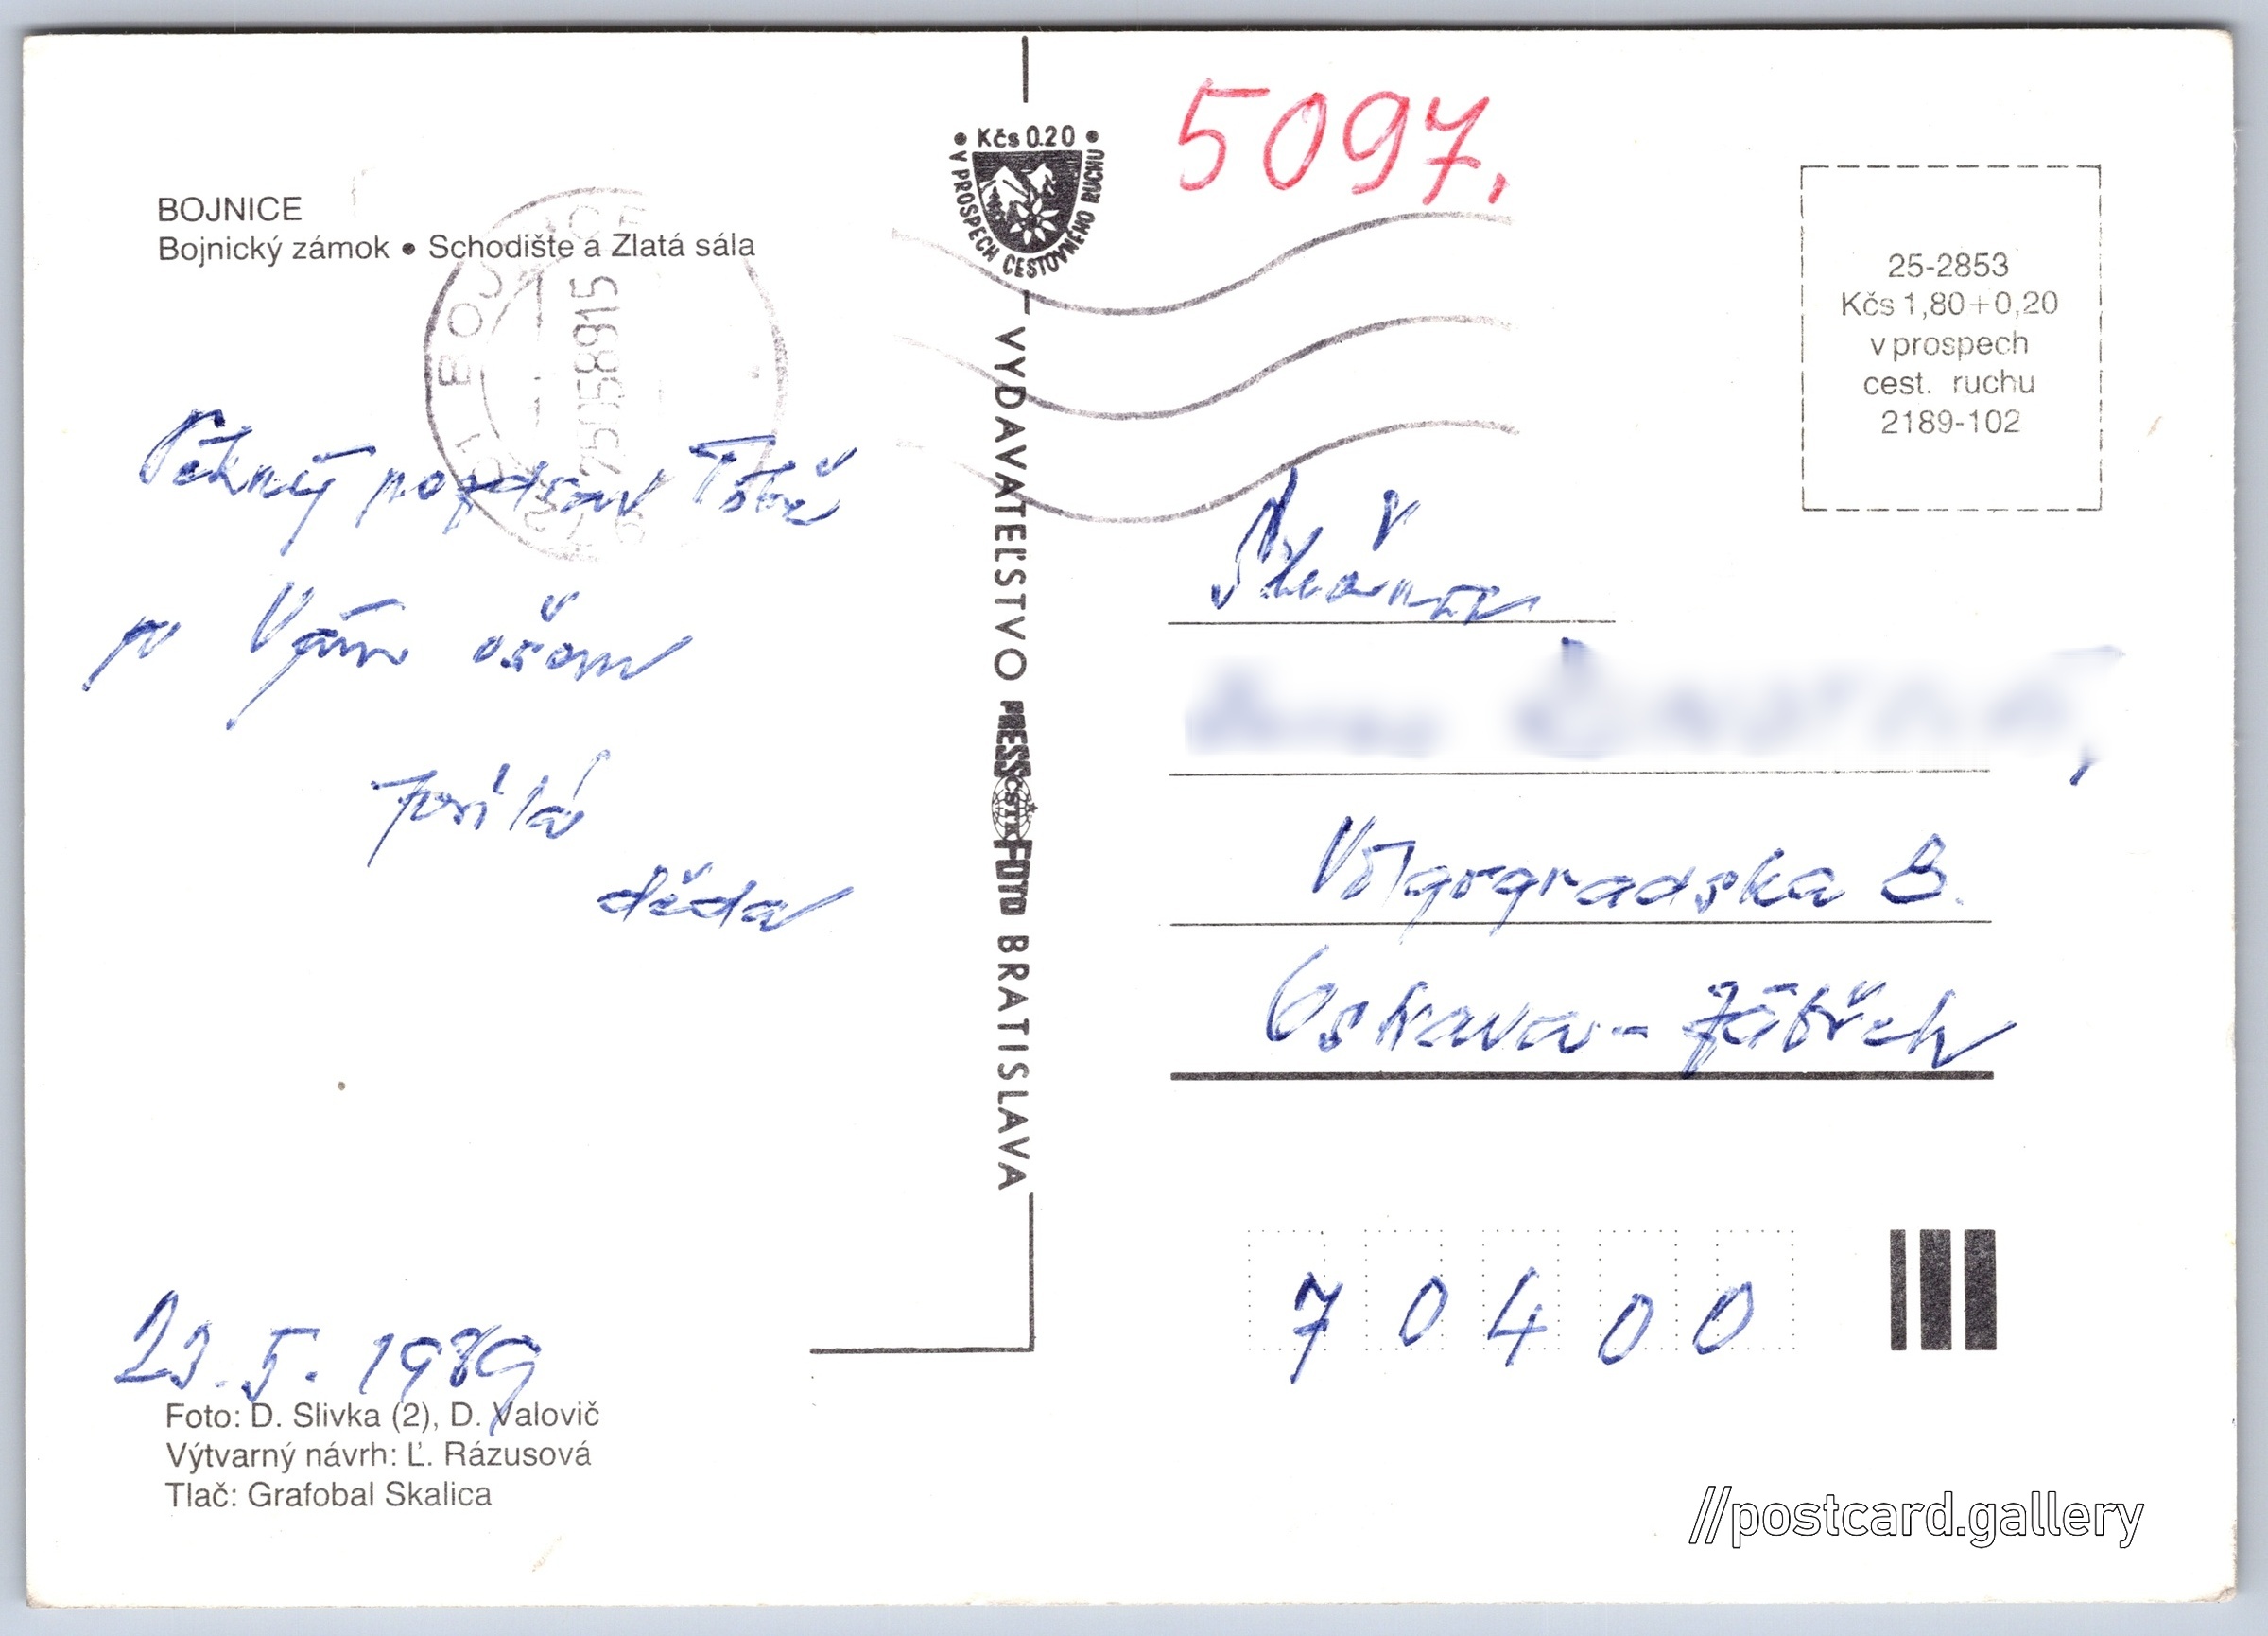 BOJNICE
Bojnický zámok • Schodište a Zlatá sála
Pěkný pozdrav Tobě
i Vám všem
posílá
děda
23. 5. 1989
Foto: D. Slivka (2), D. Valovič
Výtvarný návrh: Ľ. Rázusová
Tlač: Grafobal Skalica
• Kčs 0.20 •
V PROSPECH CESTOVNÉHO RUCHU
VYDAVATEĽSTVO PRESSFOTO BRATISLAVA
ČSTK
BOJNICE
25.05.89 15
5097.
25-2853
Kčs 1,80+0,20
v prospech
cest. ruchu
2189-102
Volgogradska 8.
Ostrava - Zábřeh
70400
//postcard.gallery